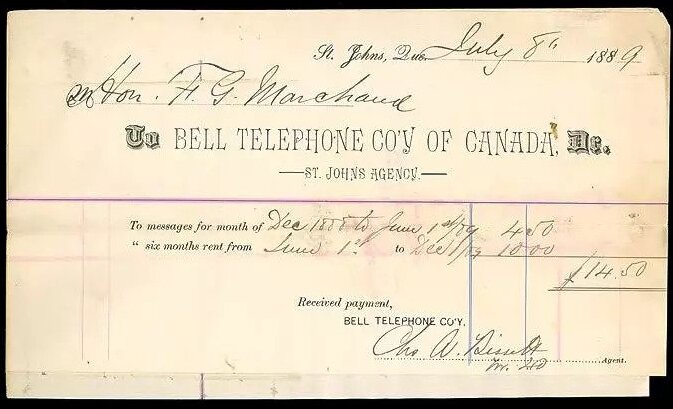 St. Johns, Que. July 8th 1889
M Hon. F. G. Marchand
To BELL TELEPHONE CO'Y OF CANADA, Dr.
ST. JOHNS AGENCY.
To messages for month of Dec 1888 to June 1st/89 4 50
" six months rent from June 1st to Dec 1/89 10 00
$14 50
Received payment,
BELL TELEPHONE CO'Y.
Chs W. Bissett
Agent.